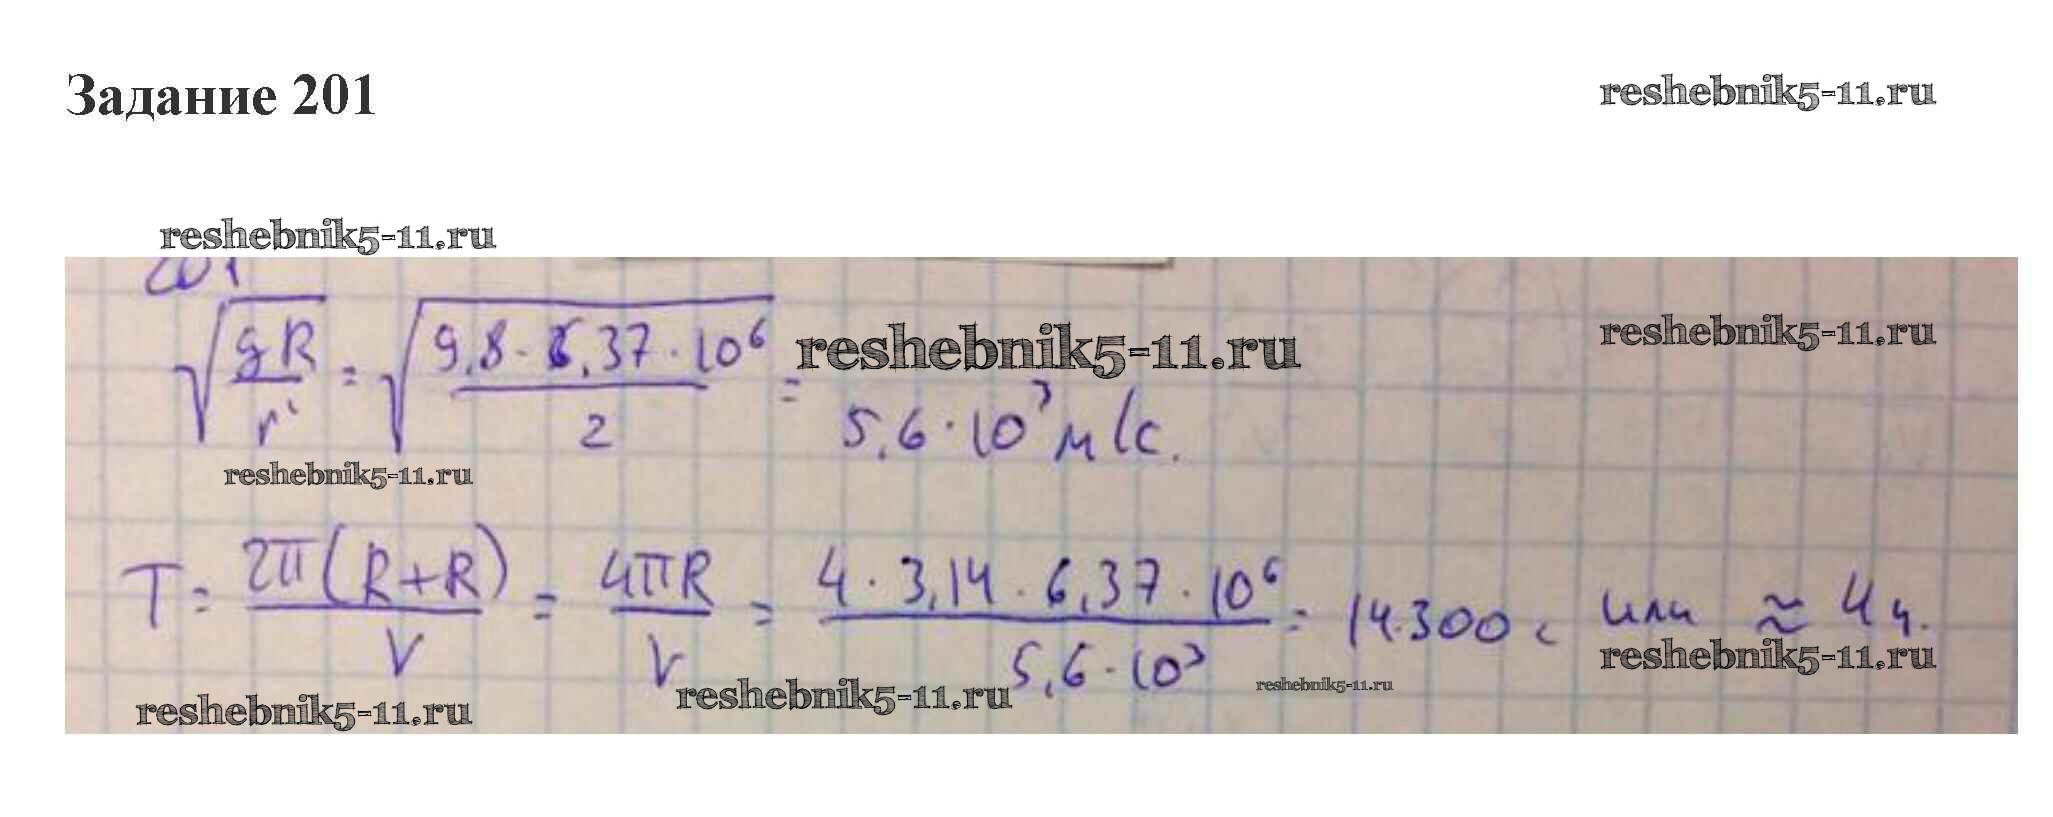 Задание 201
reshebnik5-11.ru
reshebnik5-11.ru
201
√(gR/r) = √(9,8 · 6,37 · 10⁶ / 2) = 5,6 · 10³ м/с.
reshebnik5-11.ru
reshebnik5-11.ru
reshebnik5-11.ru
T = 2π(R+R)/V = 4πR/V = 4 · 3,14 · 6,37 · 10⁶ / 5,6 · 10³ = 14.300 с или ≈ 4 ч.
reshebnik5-11.ru
reshebnik5-11.ru
reshebnik5-11.ru
reshebnik5-11.ru